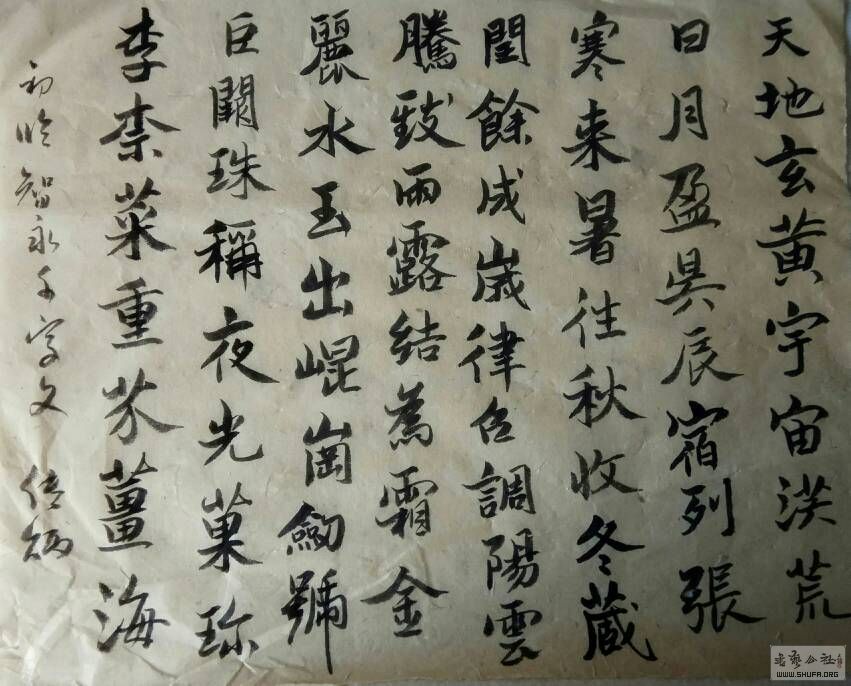 天地玄黄宇宙洪荒
日月盈昃辰宿列張
寒来暑往秋收冬蔵
閏餘成歲律呂調陽雲
騰致雨露結為霜金
麗水玉出崐崗劒號
巨闕珠稱夜光菓珎
李柰菜重芥薑海
初临智永千字文
書藝公社
WWW.SHUFA.ORG